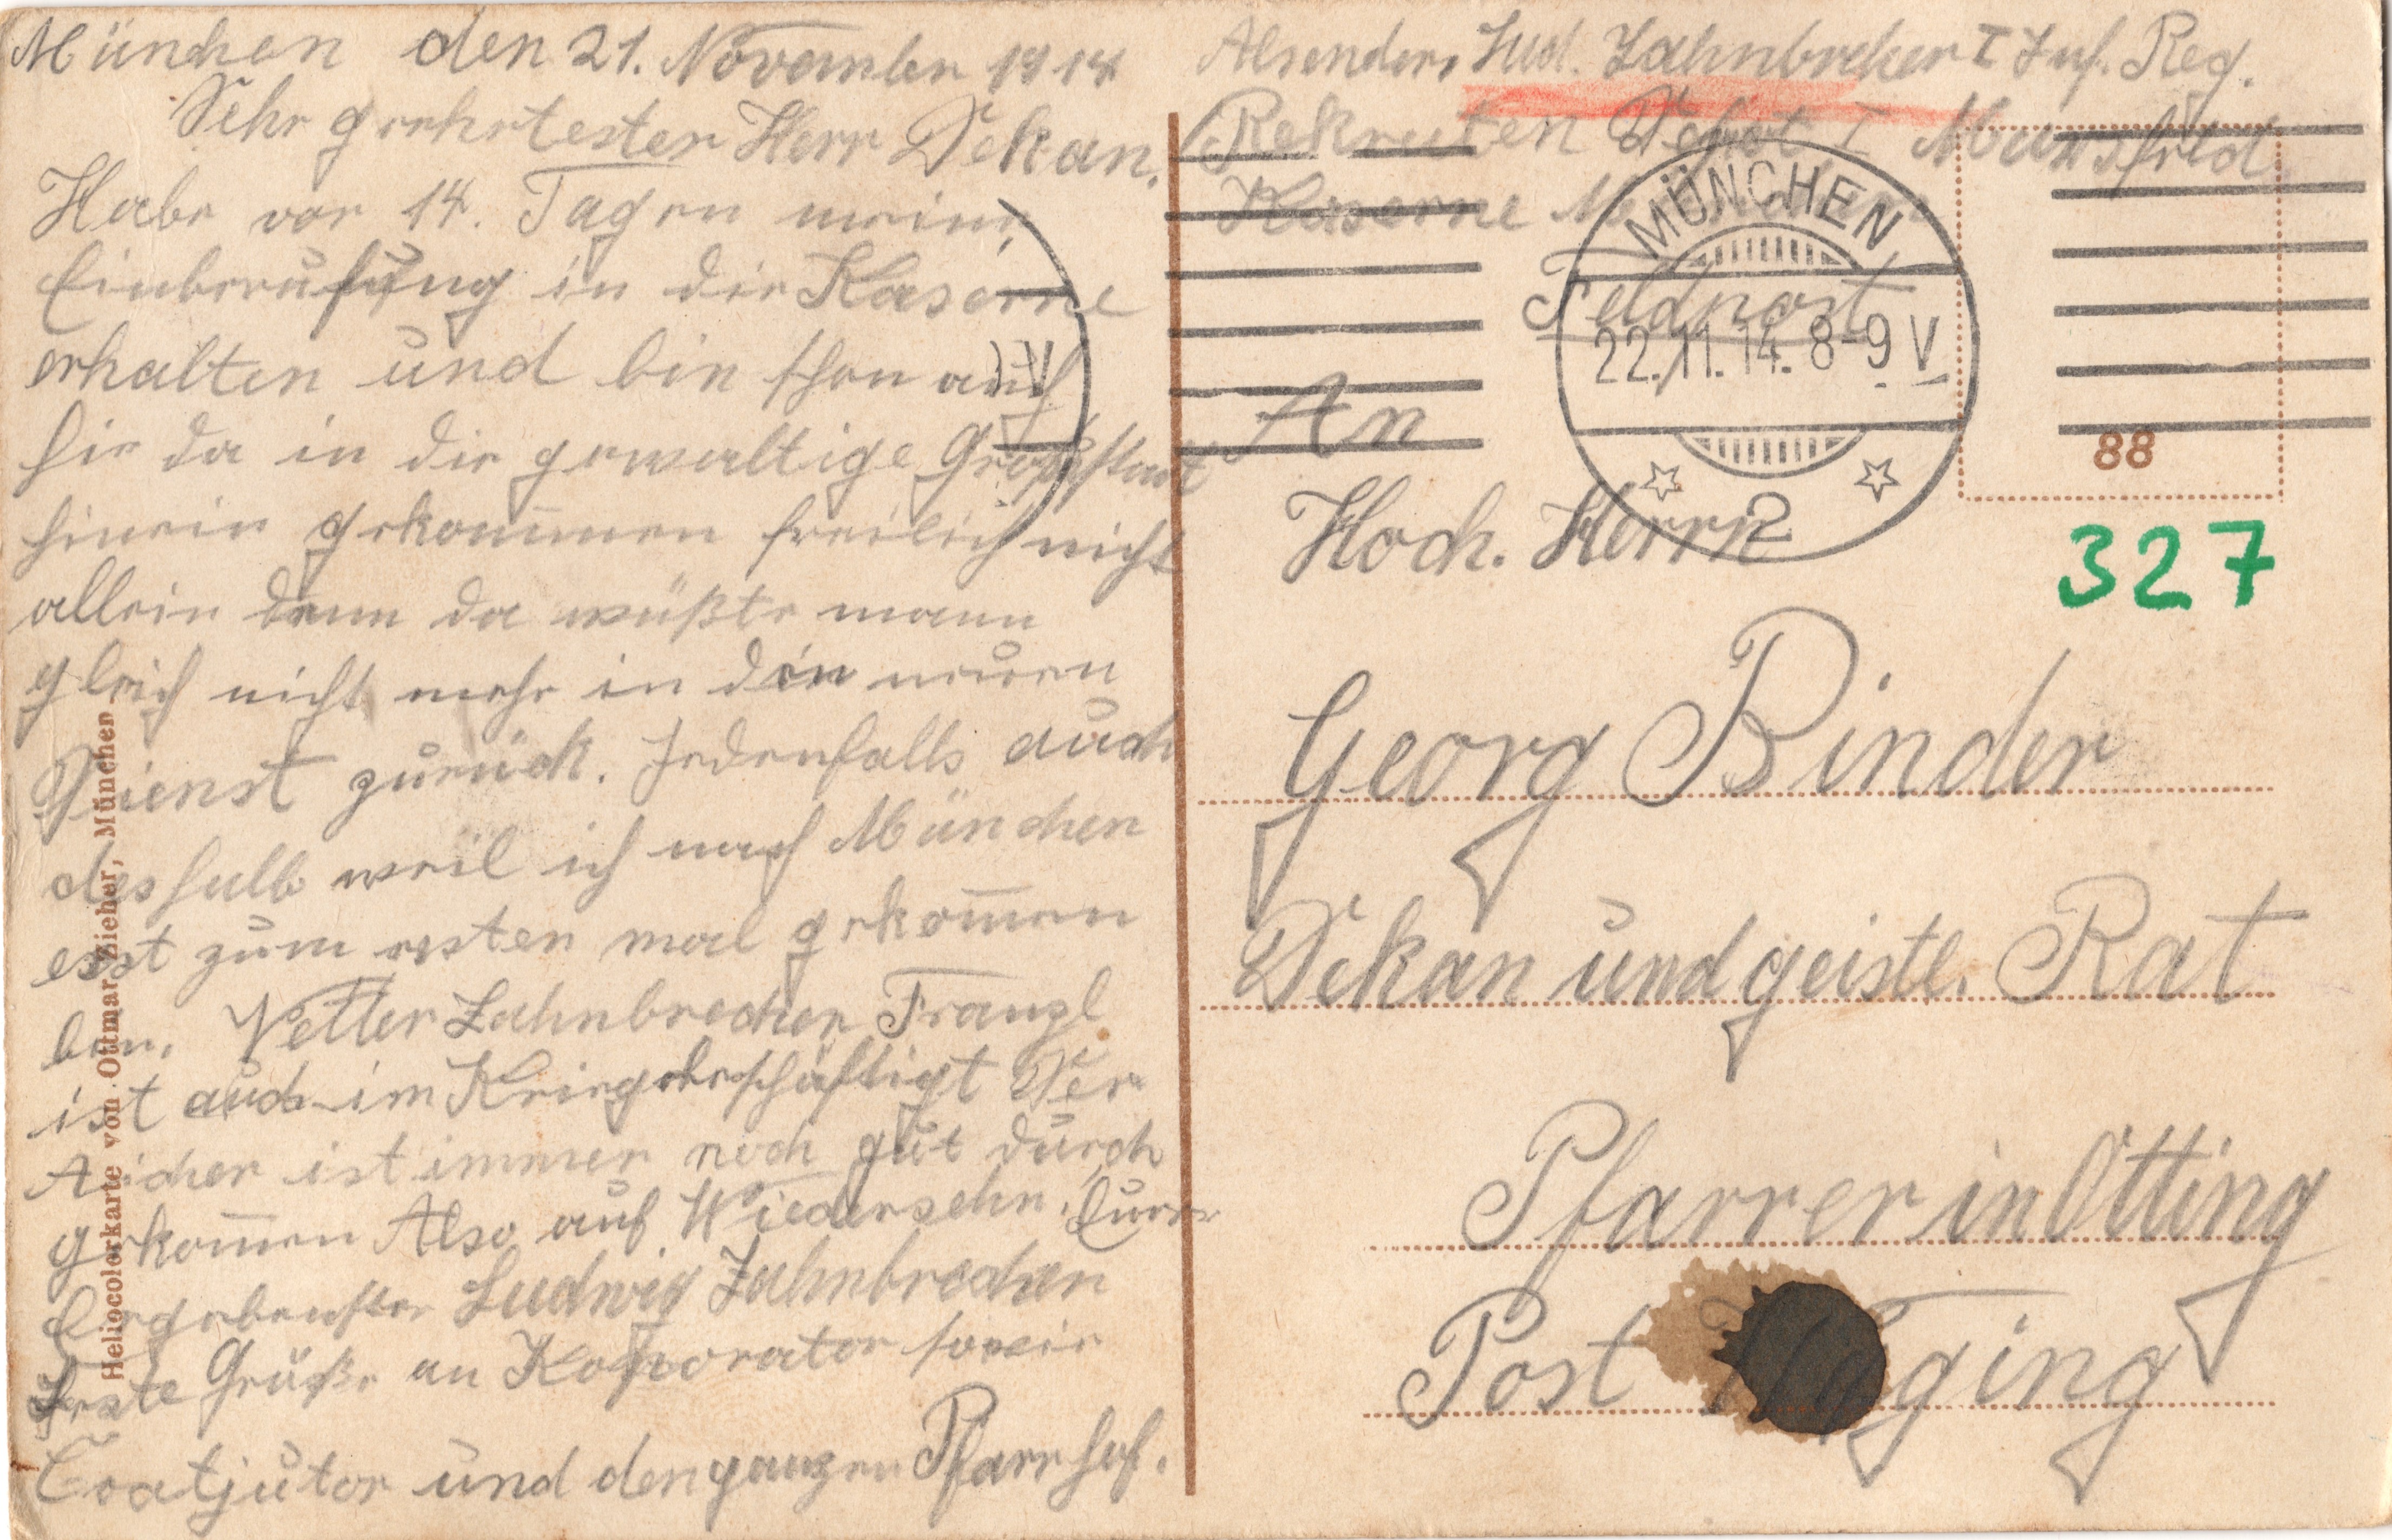 München den 21. November 1914
Sehr geehrtester Herr Dekan.
Habe vor 14. Tagen meine
Einberufung in die Kaserne
erhalten und bin schon auch
hie da in die gewaltige Großstatt
hinein gekommen freilich nicht
allein denn da wüßte mann
gleich nicht mehr in den neuen
Dienst zurück. Jedenfalls auch
deshalb weil ich nach München
erst zum ersten mal gekom̄en
bin. Vetter Zahnbrecher Franzl
ist auch im Krieg beschäftigt Der
Aicher ist immer noch gut durch
gekom̄en Also auf Wiedersehn. Euer
Ergebenster Ludwig Zahnbrecher
Grüße an Koperator sowie
Coatjutor und den ganzen Pfarrhof.
Heliocolorkarte von Ottmar Zieher, München
Absender, Lud. Zahnbrecher I Inf. Reg.
Rekruten Depot I Marsfeld
Kaserne München
Feldpost
MÜNCHEN
22.11.14. 8-9 V
2
IV
88
327
An
Hoch. Herrn
Georg Binder
Dekan und geistl. Rat
Pfarrer in Otting
Post Waging